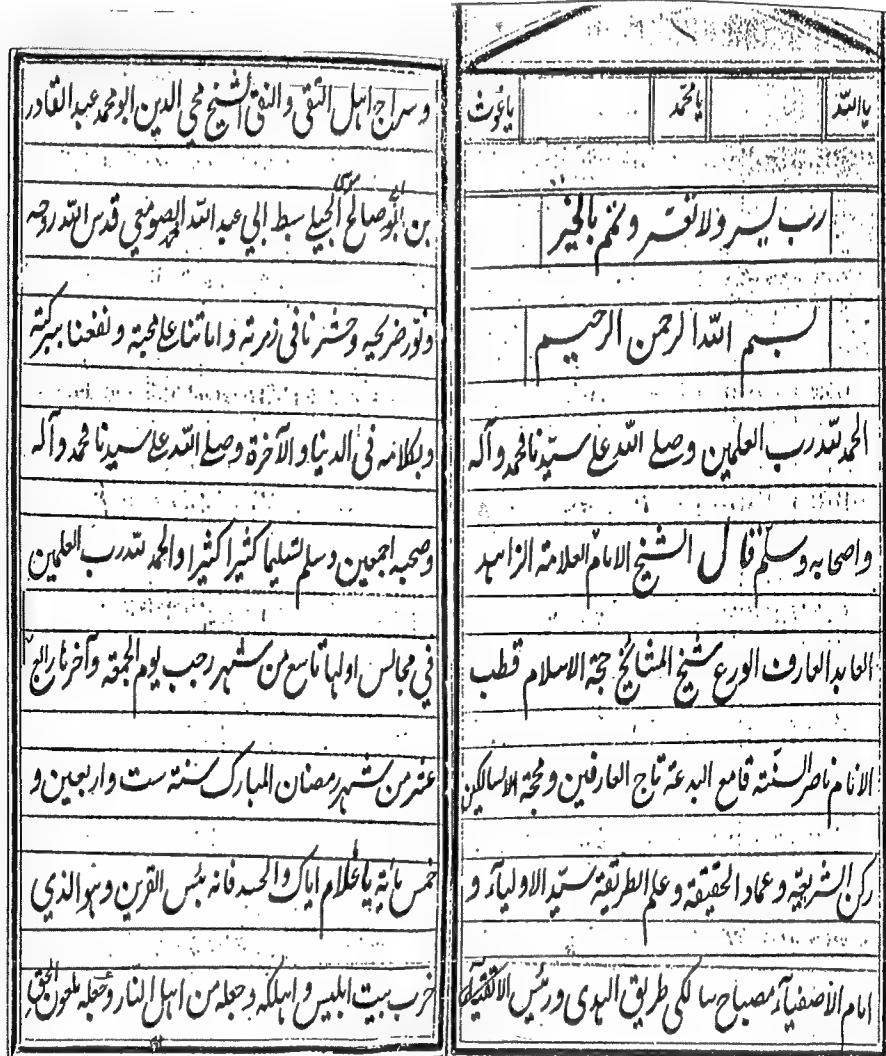 يا الله يا محمد يا غوث
رب يسر ولا تعسر وتمم بالخير
بسم الله الرحمن الرحيم
الحمد لله رب العلمين وصلے الله علے سيّدنا محمد وآله
واصحابه وسلّم قال الشيخ الامام العلامة الزاهد
العابد العارف الورع شيخ المشائخ حجة الاسلام قطب
الانام ناصر السنّة قامع البدعة تاج العارفين ومحجة السالكين
ركن الشريعة وعماد الحقيقة وعلم الطريقة سيّد الاولياء و
امام الاصفياء مصباح سالكي طريق الهدى ورئيس الاتقياء
وسراج اهل التقى والنقى الشيخ محي الدين ابو محمد عبد القادر
بن ابو صالح الجيلے سبط ابي عبد الله الصومعي قدس الله روحه
ونور ضريحه وحشرنا في زمرته واماتنا علے محبته ونفعنا ببركته
وبكلامه في الدنيا والآخرة وصلے الله علے سيدنا محمد وآله
وصحبه اجمعين وسلم تسليما كثيرا كثيرا والحمد لله رب العلمين
في مجالس اولها تاسع من شهر رجب يوم الجمعة وآخرها رابع
عشر من شهر رمضان المبارك سنته ست واربعين و
خمس مائة يا غلام اياك والحسد فانه بئس القرين وهو الذي
خرب بيت ابليس واهلكه وجعله من اهل النار وجعله ملعون الحق